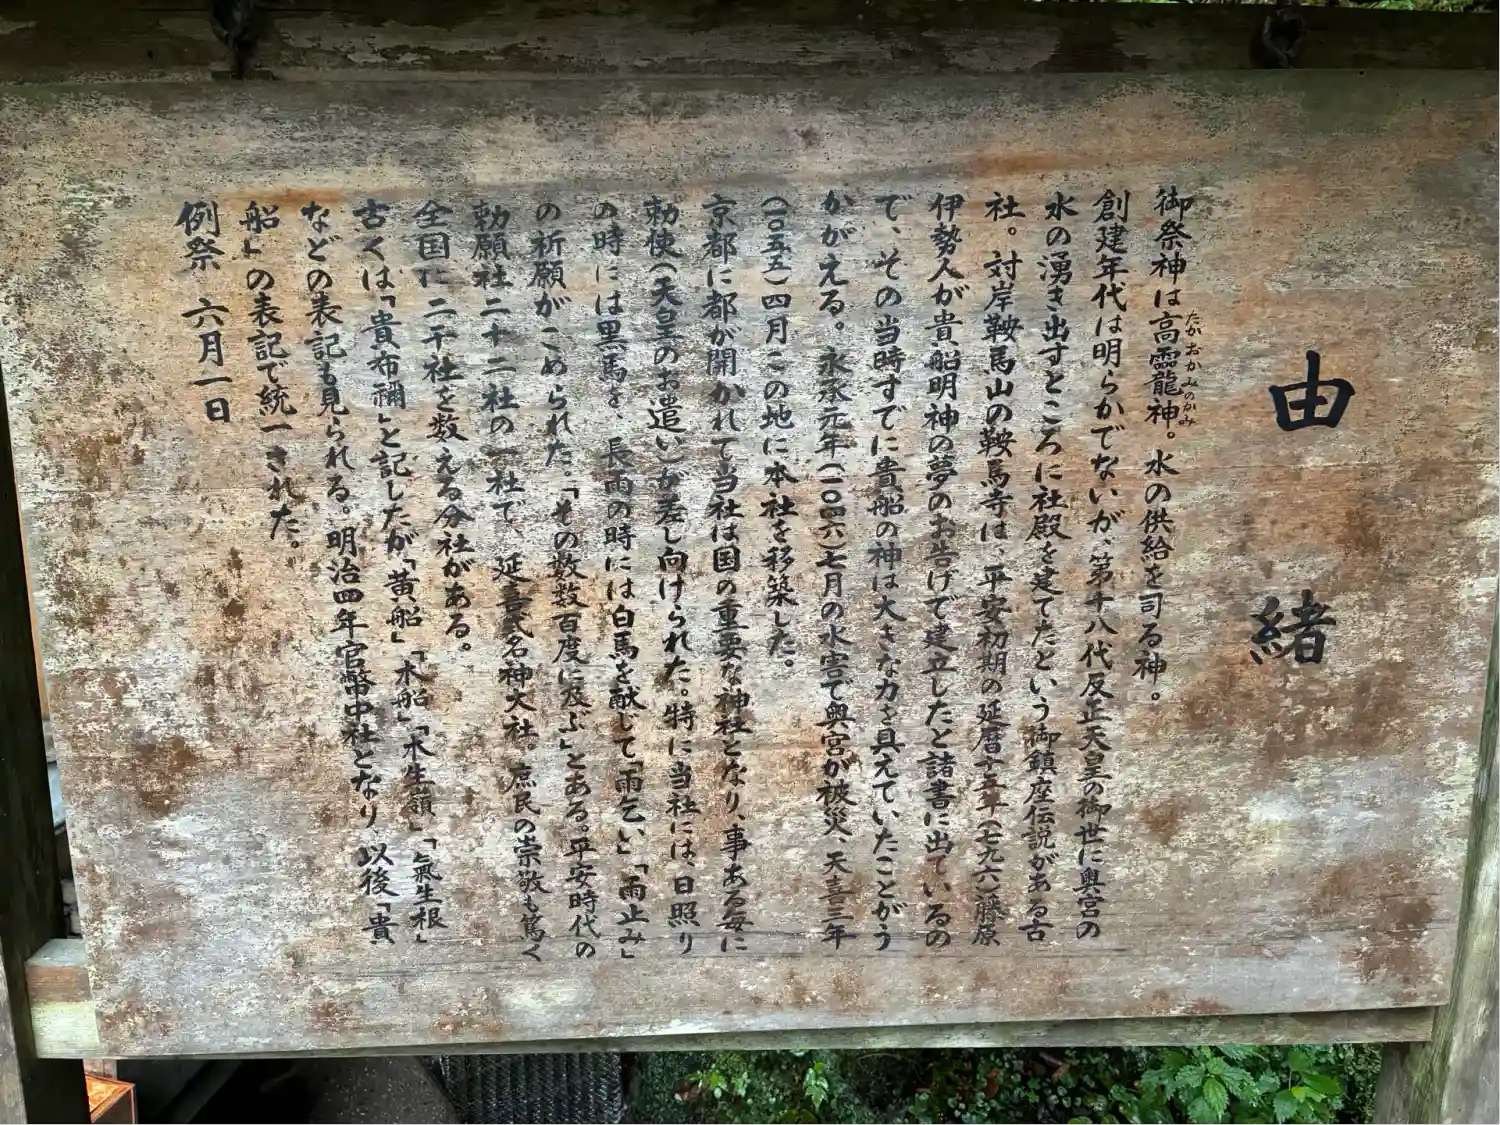 由緒
御祭神は高龗龍神。水の供給を司る神。
たかおかみのかみ
創建年代は明らかでないが、第十八代反正天皇の御世に奥宮の
水の湧き出すところに社殿を建てたという御鎮座伝説がある古
社。対岸鞍馬山の鞍馬寺は、平安初期の延暦十五年(七九六)藤原
伊勢人が貴船明神の夢のお告げで建立したと諸書に出ているの
で、その当時すでに貴船の神は大きな力を具えていたことがう
かがえる。永承元年(一〇四六)七月の水害で奥宮が被災、天喜三年
(一〇五五)四月この地に本社を移築した。
京都に都が開かれて当社は国の重要な神社となり、事ある毎に
勅使(天皇のお遣い)が差し向けられた。特に当社には、日照り
の時には黒馬を、長雨の時には白馬を献じて「雨乞い」「雨止み」
の祈願がこめられた。「その数数百度に及ぶ」とある。平安時代の
勅願社二十二社の一社で、延喜式名神大社。庶民の崇敬も篤く
全国に二千社を数える分社がある。
古くは「貴布禰」と記したが「黄船」「木船」「木生嶺」「氣生根」
などの表記も見られる。明治四年官幣中社となり以後「貴
船」の表記で統一された。
例祭 六月一日